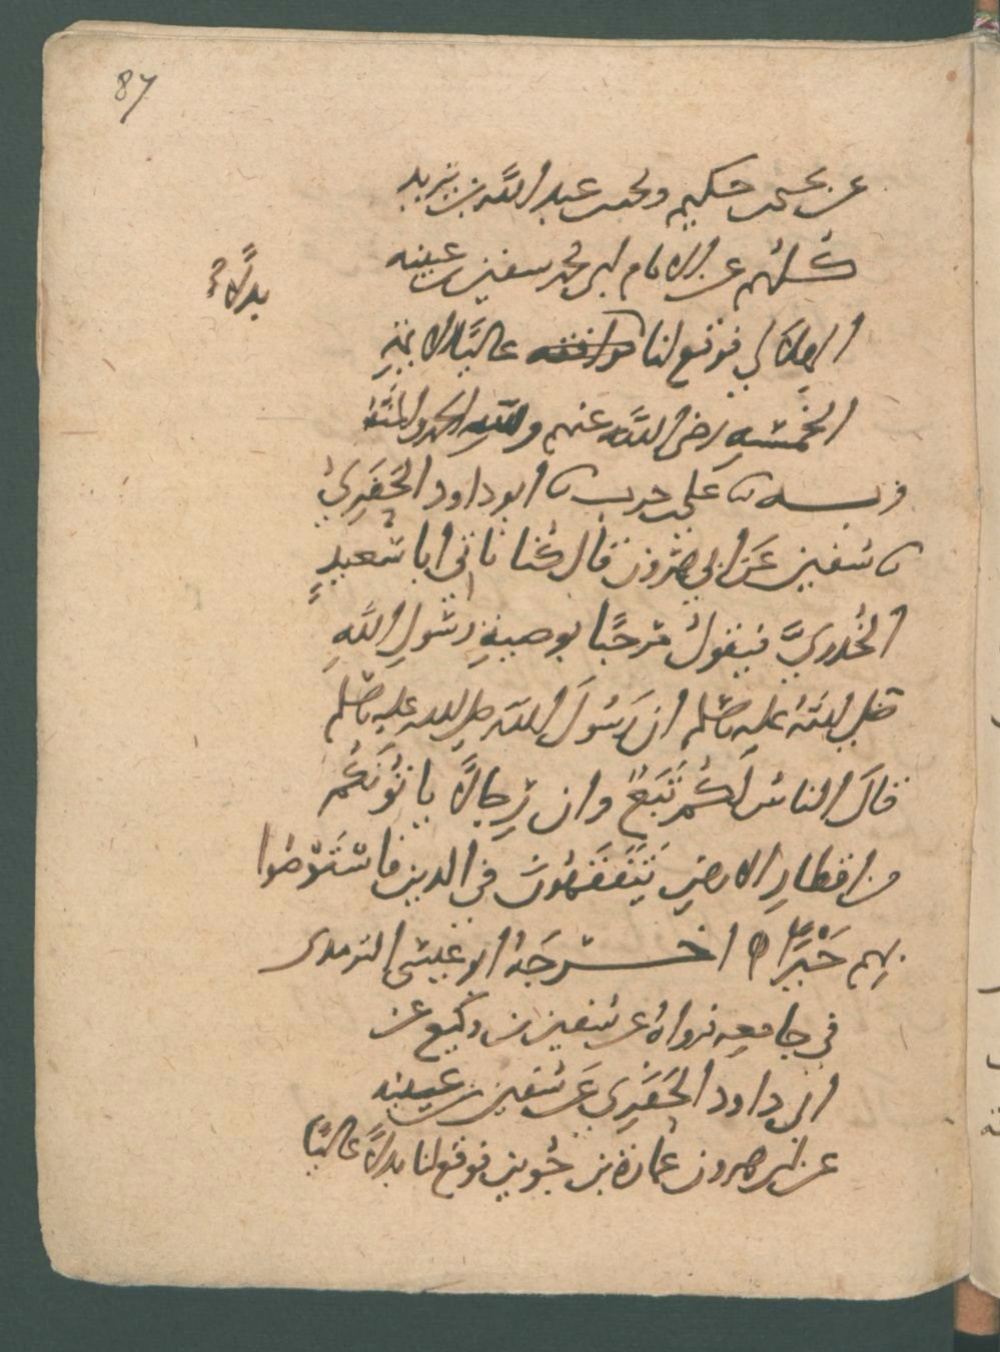 87
عن يحيى بن حكيم ومحمد بن عبد الله بن يزيد
كلهم عن الامام ابي محمد سفين بن عيينه
بدلًا
الهلالي فوقع لنا موافقه عاليًا للائمةِ
الخمسةِ رضي الله عنهم ولله الحمد والمنّة
وبـــه ثنا علي بن حرب ثنا ابو داود الحَفَرِيّ
ثنا سفين عَن ابي هٰرون قال كُنا ناتي ابا سَعيدٍ
الخُدريَّ فيقولُ مَرحَبًا بوصيةِ رسُولِ اللهِ
صَلى اللهُ عليه وسَلم ان رَسُولَ الله صلى الله عليه وسَلم
قالَ الناسُ لكُم تَبَعٌ وان رِجالًا ياتُونَكُم
من اقطارِ الارضِ يَتَفَقَّهُونَ في الدينِ فاستَوْصُوا
بِهِم خَيْرًا ٥ اخــرجَهُ ابو عيسَى الترمذى
في جامعِه فرواهُ عن سُفين بن وكيع عن
ابي داود الحَفَرِي عَن سُفين بن عيينه
عن ابي هرون عُمارة بن جُوين فوقع لنا بدلًا عاليًا